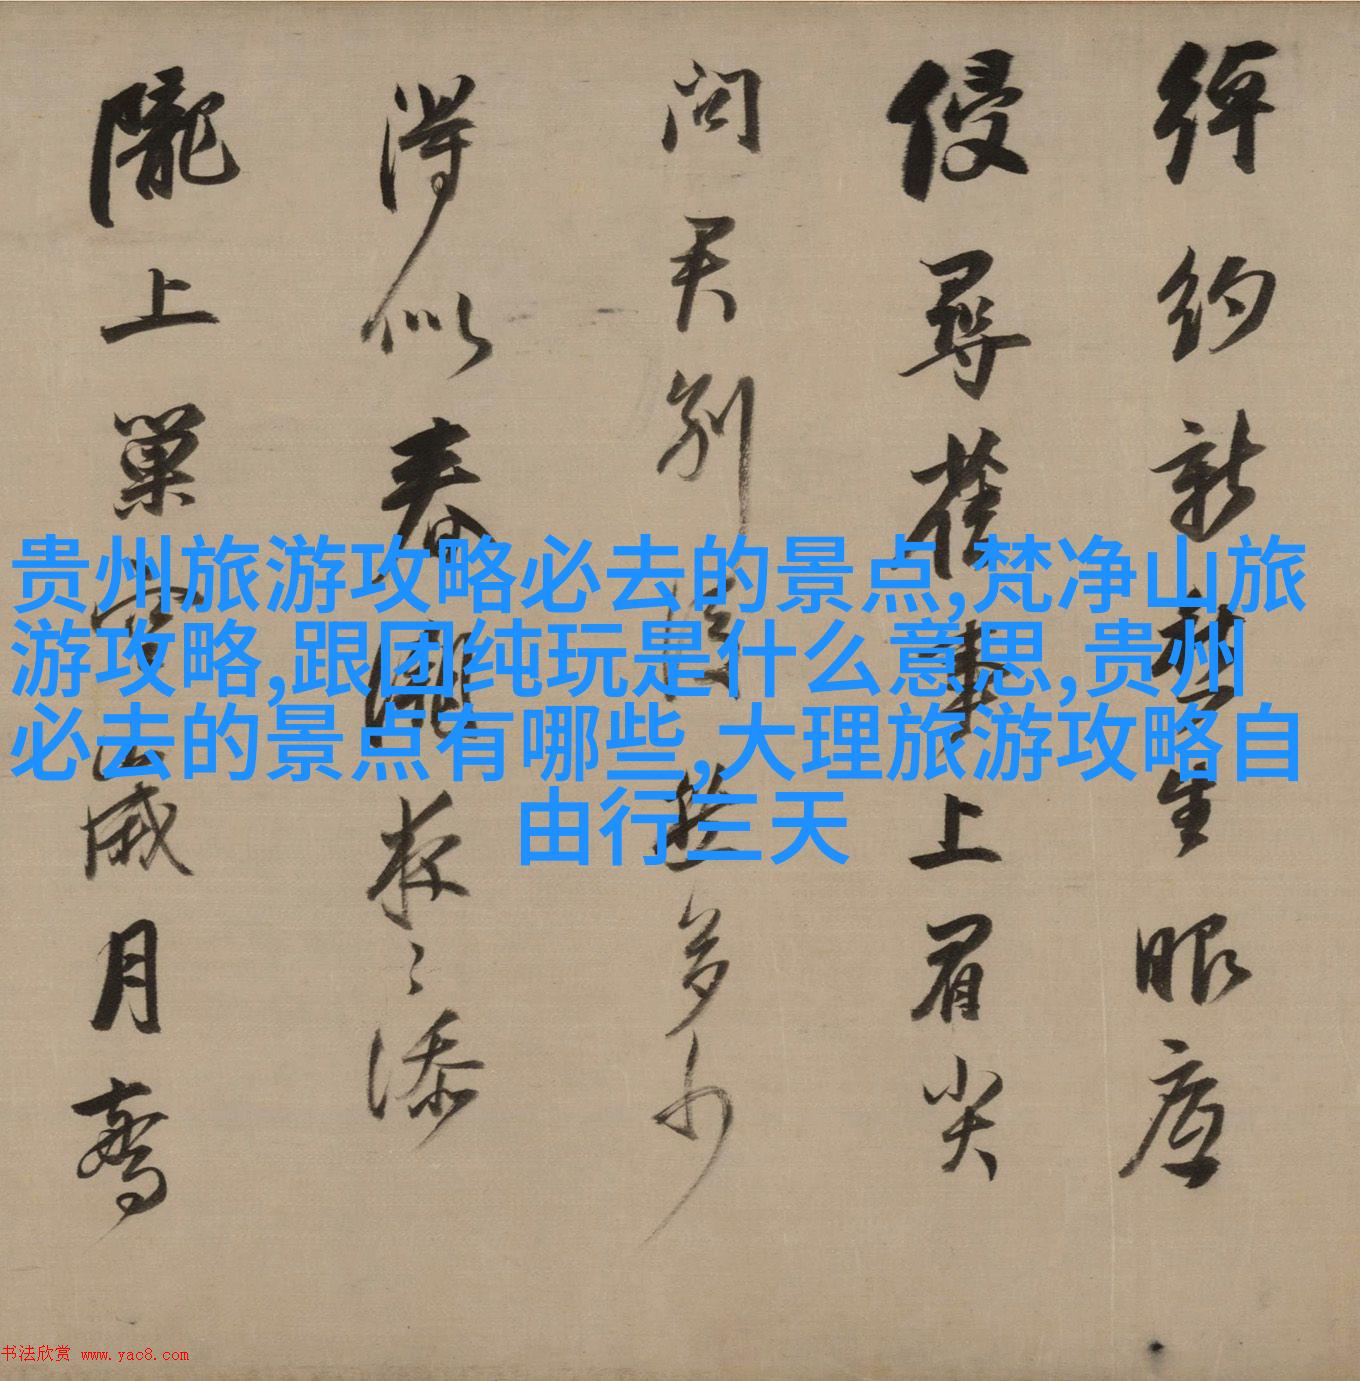 贵州旅游攻略必去的景点,梵净山旅
游攻略,跟团纯玩是什么意思,贵州
必去的景点有哪些,大理旅游攻略自
由行三天
綽約新生眼底
侵尋舊事上眉尖
问君别後愁多少
得似春潮夜〻添
隴上巢空歲月驚
书法欣赏 www.yac8.com